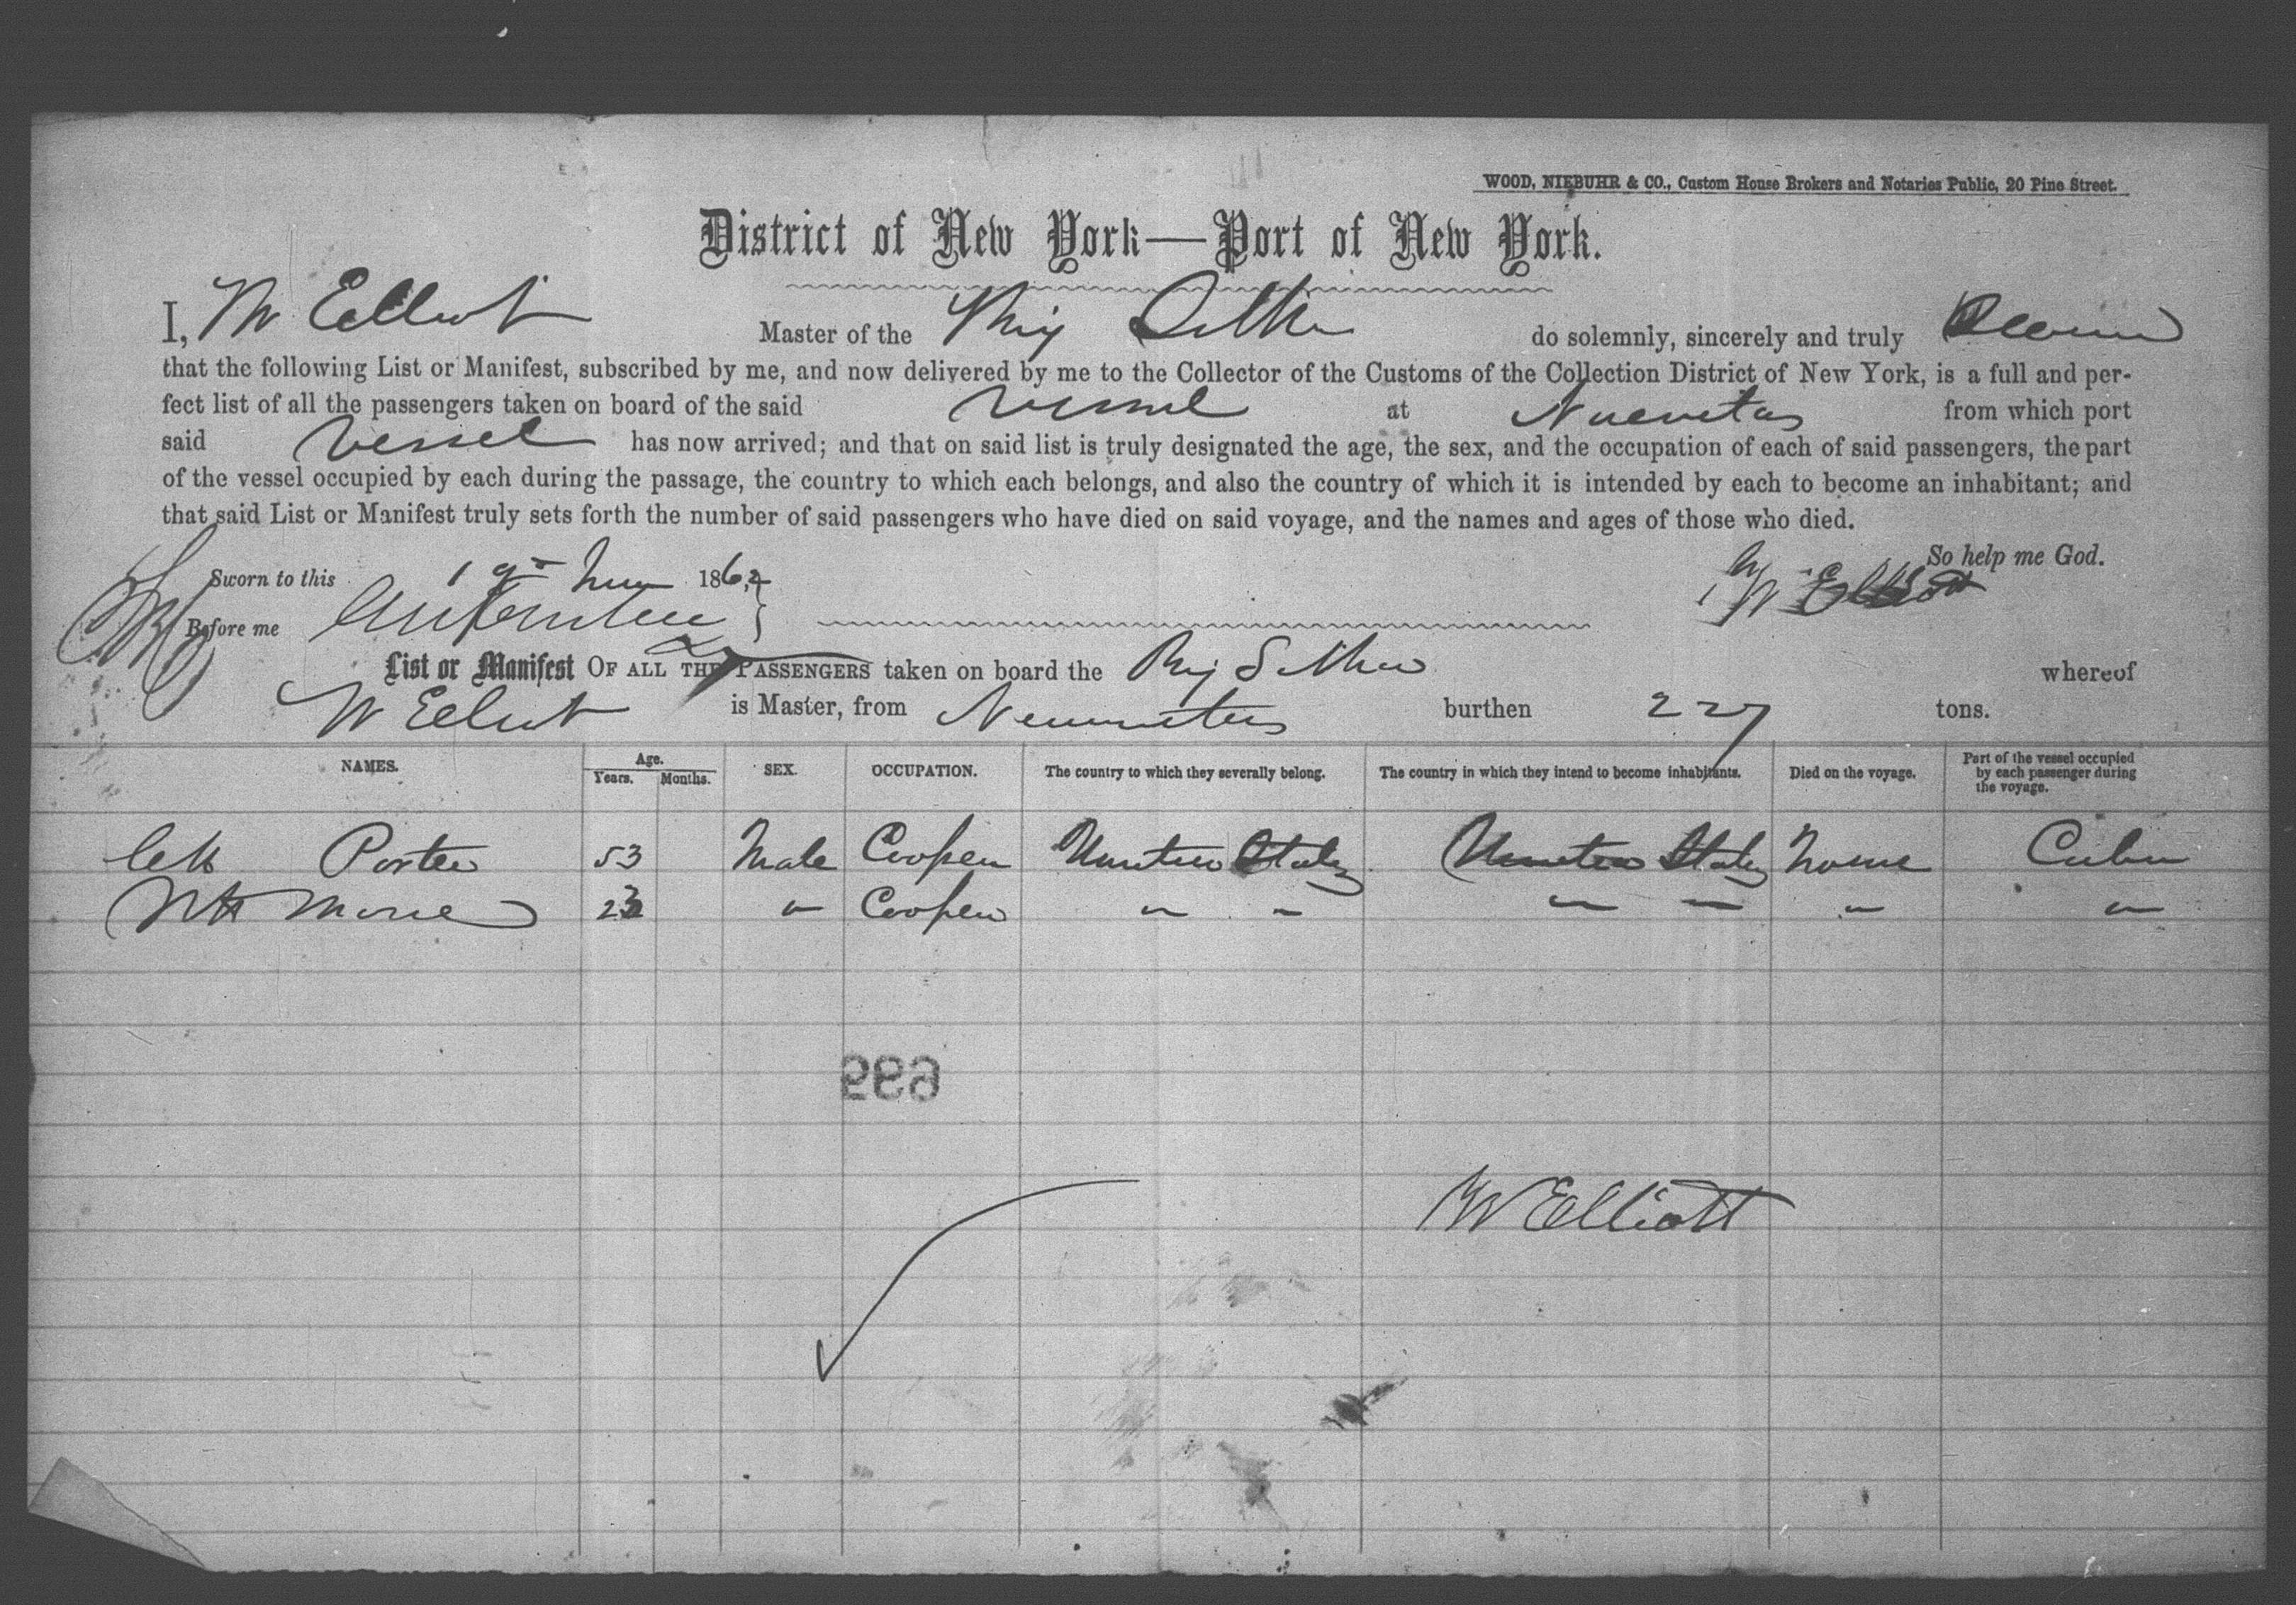 WOOD, NIEBUHR & CO., Custom House Brokers and Notaries Public, 20 Pine Street.
District of New York—Port of New York.
I, W Elliott Master of the Brig do solemnly, sincerely and truly
that the following List or Manifest, subscribed by me, and now delivered by me to the Collector of the Customs of the Collection District of New York, is a full and per-
fect list of all the passengers taken on board of the said Vessel at Nuevitas from which port
said Vessel has now arrived; and that on said list is truly designated the age, the sex, and the occupation of each of said passengers, the part
of the vessel occupied by each during the passage, the country to which each belongs, and also the country of which it is intended by each to become an inhabitant; and
that said List or Manifest truly sets forth the number of said passengers who have died on said voyage, and the names and ages of those who died.
So help me God.
Sworn to this 186
W Elliott
Before me
List or Manifest OF ALL THE PASSENGERS taken on board the Brig whereof
W Elliott is Master, from Nuevitas burthen 227 tons.
NAMES. Age. Years. Months. SEX. OCCUPATION. The country to which they severally belong. The country in which they intend to become inhabitants. Died on the voyage. Part of the vessel occupied by each passenger during the voyage.
Porter 53 Male Cooper United States United States None Cabin
Morse 23 " Cooper " " " " " "
W Elliott